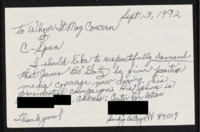 Sept. 3, 1992
To Whom It May Concern
at
C-Span
I should like to respectfully demand
that James "Bo" Gritz be given positive
media coverage now during his
presidential campaign. His phone is
address:
Thank you!